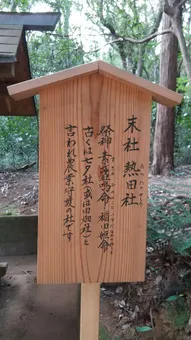 末社 熱田社
祭神 素盞嗚命 稲田姫命
古くは七夕社(或は田畑社)と
言われ農業守護の社です